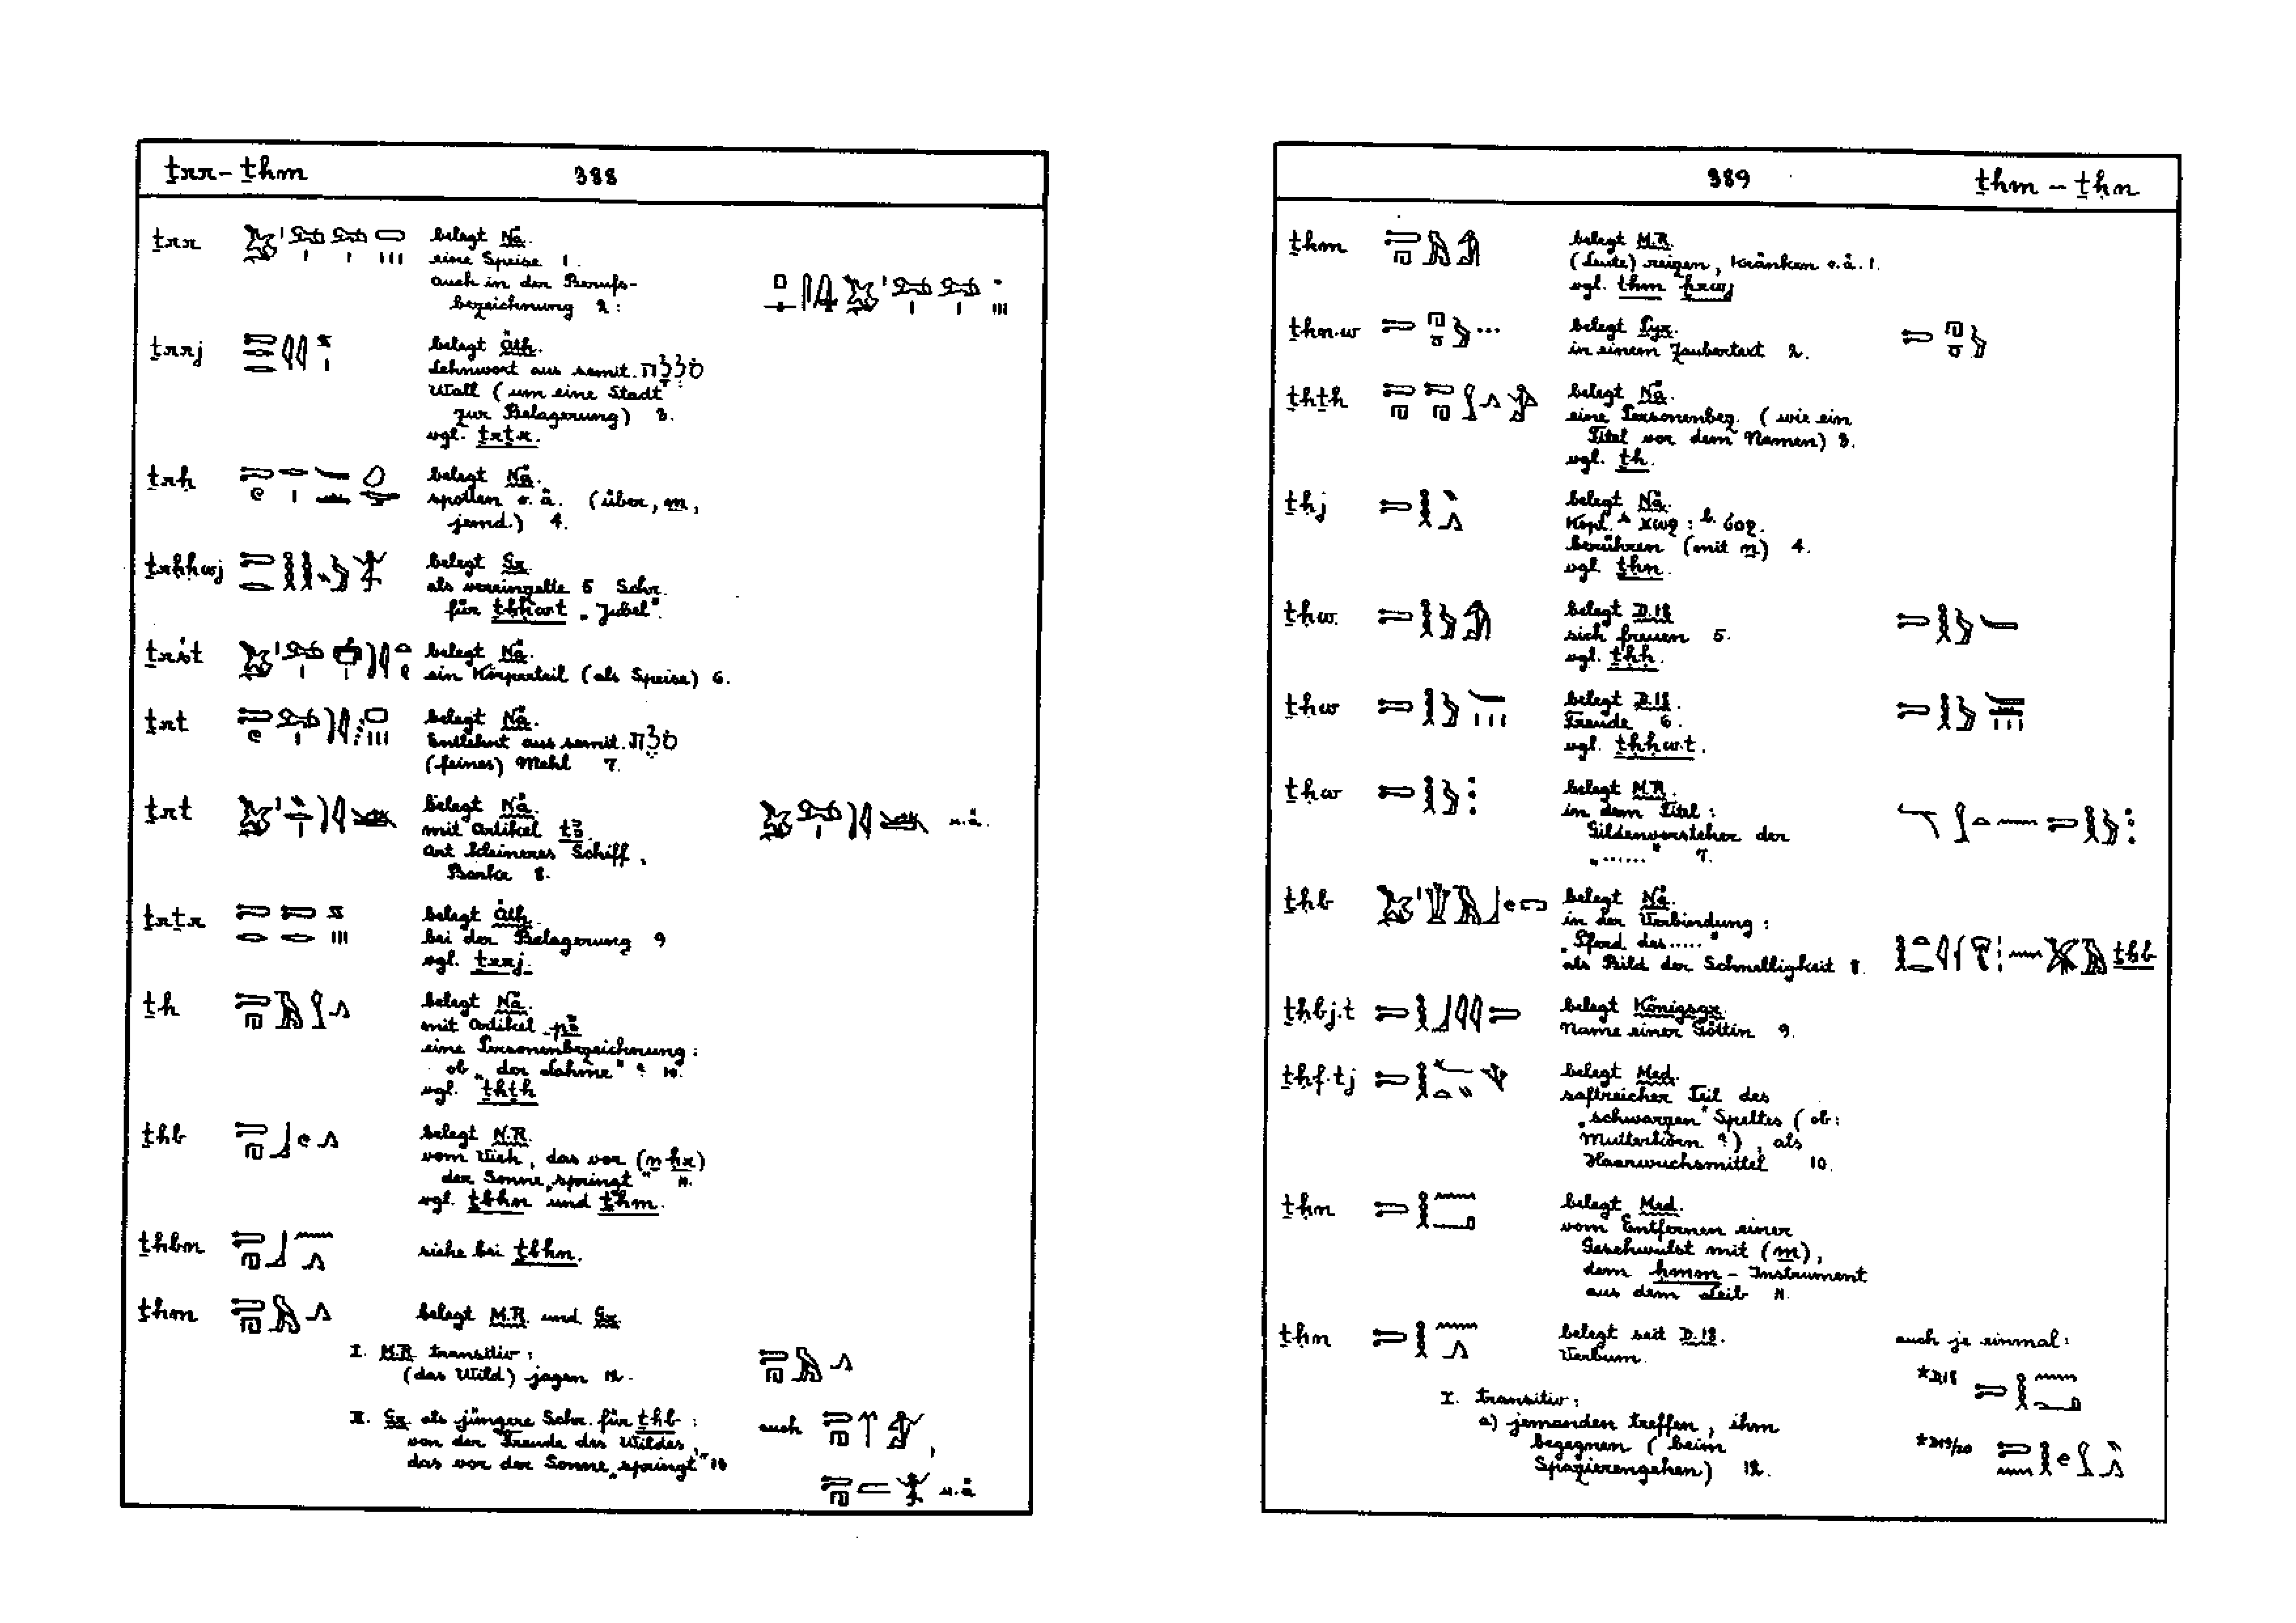 ṯrr – ṯhm 388
ṯrr belegt Nä.
eine Speise 1.
auch in der Berufs-
bezeichnung 2:
ṯrrj belegt Äth.
Lehnwort aus semit.
Wall (um eine Stadt
zur Belagerung) 3.
vgl. ṯrṯr.
ṯrh belegt Nä.
spotten o. ä. (über, m,
jemd.) 4.
ṯrḥḥwj belegt Gr.
als vereinzelte 5 Schr.
für ṯḥḥwt „Jubel".
belegt Nä.
ein Körperteil (als Speise) 6.
ṯrt belegt Nä.
Entlehnt aus semit.
(feines) Mehl 7.
ṯrt belegt Nä. u. ä.
mit Artikel tꜣ.
Art kleineres Schiff,
Barke 8.
ṯrṯr belegt Äth.
bei der Belagerung 9
vgl. ṯrrj.
ṯh belegt Nä.
mit Artikel pꜣ
eine Personenbezeichnung:
ob „der Lahme" ? 10.
vgl. ṯhṯh
ṯhb belegt N.R.
vom Vieh, das vor (n ḥr)
der Sonne „springt" 11.
vgl. ṯbhn und ṯhm.
ṯhbn siehe bei ṯbhn.
ṯhm belegt M.R. und Gr.
I. M.R. transitiv:
(das Wild) jagen 12.
II. Gr. als jüngere Schr. für ṯhb: auch
von der Freude des Wildes,
das vor der Sonne „springt" 13
u. ä.
389 ṯhm – ṯḥn
ṯhm belegt M.R.
(Leute) reizen, kränken o. ä. 1.
vgl. thm
ṯhn.w belegt Pyr.
in einem Zaubertext 2.
ṯhṯh belegt Nä.
eine Personenbez. (wie ein
Titel vor dem Namen) 3.
vgl. ṯh.
ṯḥj belegt Nä.
Kopt.
berühren (mit n) 4.
vgl. ṯḥn.
ṯḥw belegt D.18
sich freuen 5.
vgl. ṯḥḥ.
ṯḥw belegt D.18.
Freude 6.
vgl. ṯḥḥw.t.
ṯḥw belegt M.R.
in dem Titel:
Gildenvorsteher der
„......" 7.
ṯḥb belegt Nä.
in der Verbindung:
„Pferd des ....."
als Bild der Schnelligkeit 8. ṯḥb
ṯḥbj.t belegt Königsgr.
Name einer Göttin 9.
ṯḥf.tj belegt Med.
saftreicher Teil des
„schwarzen" Speltes (ob:
Mutterkorn ?), als
Haarwuchsmittel 10.
ṯḥn belegt Med.
vom Entfernen einer
Geschwulst mit (m),
dem ḥmm – Instrument
aus dem Leib 11.
ṯḥn belegt seit D.18. auch je einmal:
Verbum.
*D18
I. transitiv:
a) jemanden treffen, ihm
begegnen (beim *D19/20
Spazierengehen) 12.